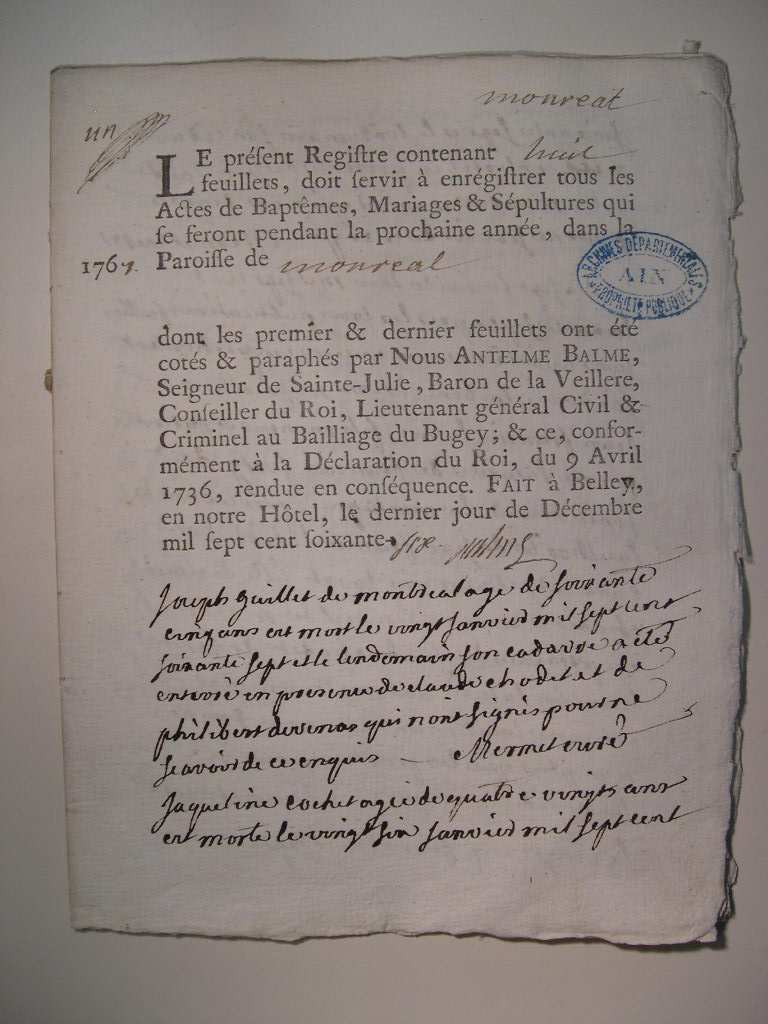 monreal
un
LE préſent Regiſtre contenant huit
feuillets, doit ſervir à enrégiſtrer tous les
Actes de Baptêmes, Mariages & Sépultures qui
ſe feront pendant la prochaine année, dans la
1767. Paroiſſe de monreal
ARCHIVES DÉPARTEMENTALES
AIN
PROPRIÉTÉ PUBLIQUE
dont les premier & dernier feuillets ont été
cotés & paraphés par Nous ANTELME BALME,
Seigneur de Sainte-Julie, Baron de la Veillere,
Conſeiller du Roi, Lieutenant général Civil &
Criminel au Bailliage du Bugey; & ce, confor-
mément à la Déclaration du Roi, du 9 Avril
1736, rendue en conſéquence. FAIT à Belley,
en notre Hôtel, le dernier jour de Décembre
mil ſept cent ſoixante-six. Balme
Joseph guillet de montreal age de soixante
cinq ans est mort le vingt janvier mil sept cent
soixante sept et le lendemain son cadavre a été
enterré en presence de claude chodet et de
philibert devenas qui nont signés pour ne
scavoir de ce enquis - Mermet curé
Jaqueline cochet agée de quatre vingts ans
est morte le vingt six janvier mil sept cent